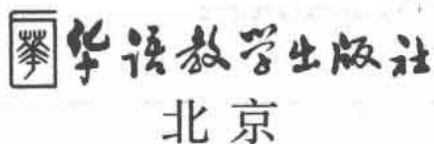 華 华语教学出版社
北京